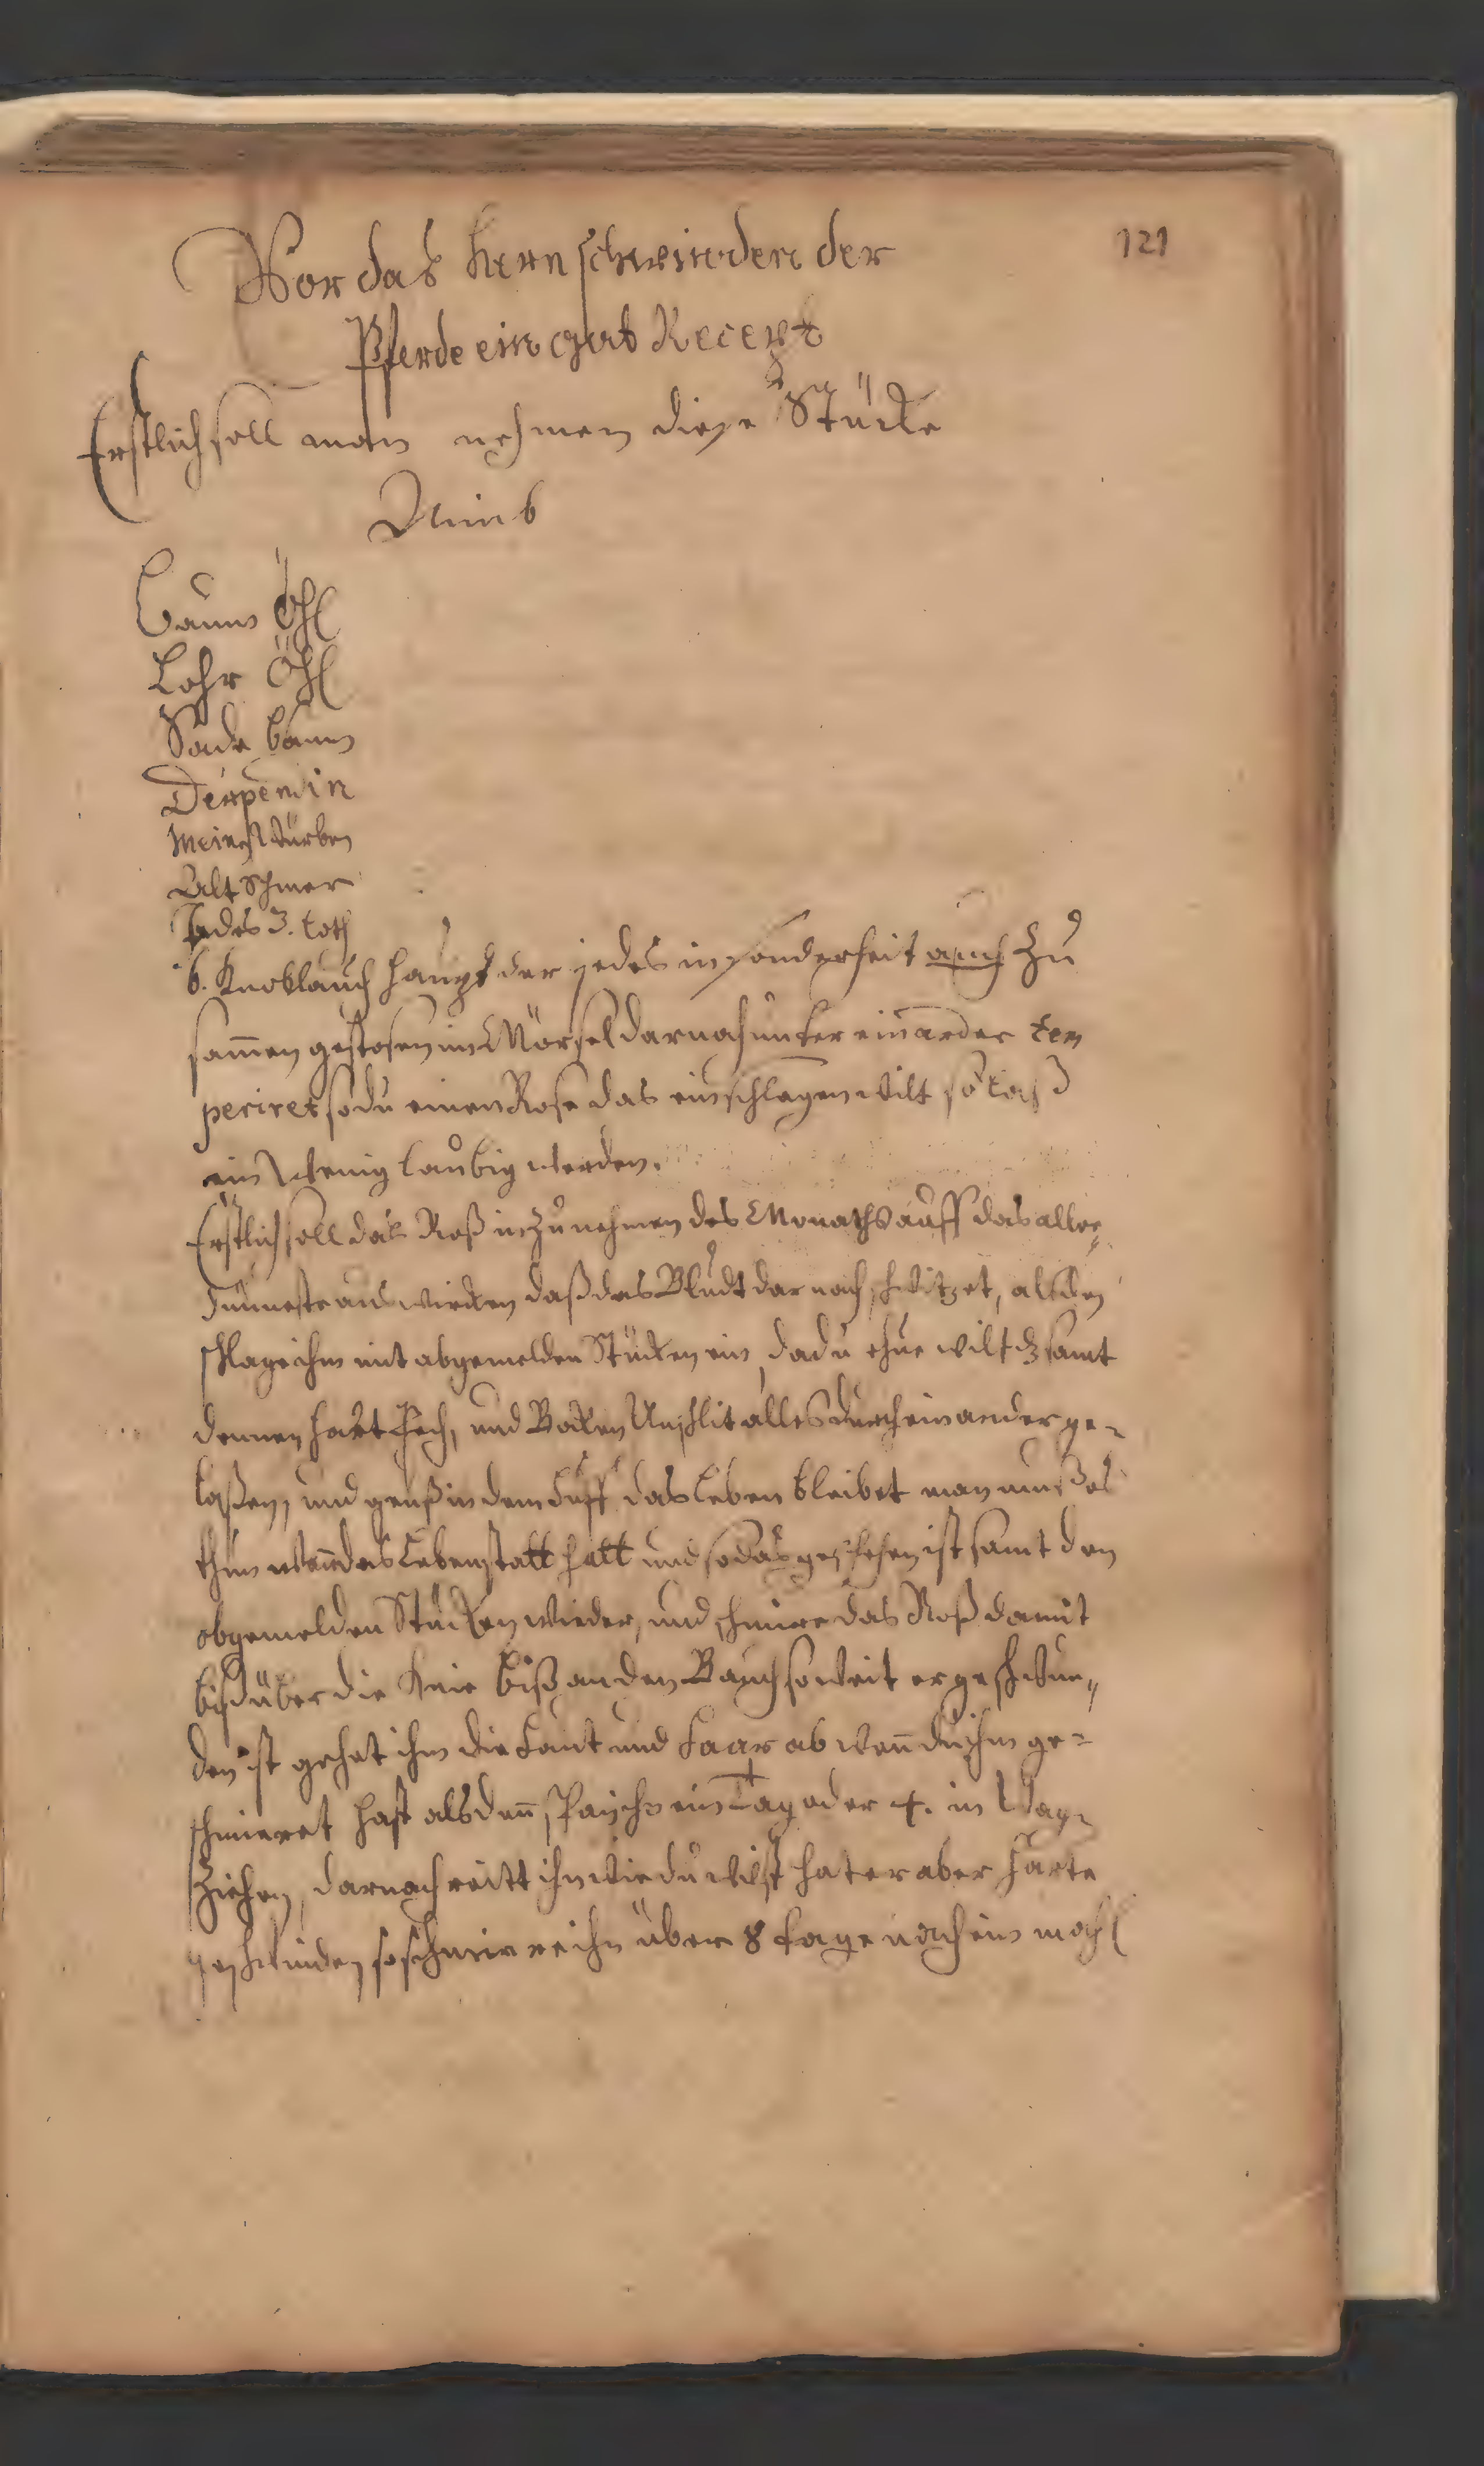 121
Vor das hern schwinden der
Pferde ein gut Recept
Erstlich soll man nehmen diese Stücke
Nimb
Baum Öhl
Lohr Öhl
Sade baum
Derpendin
Alt Schmer
Jedes 3. Loth
6. Knoblauch haupt der jedes in sonderheit auch zu
sam̅en gestosen im Mörsel darnach unter einander tem
periret so du einen Rose das einschlagen wilt so laß
ein wenig laubig werden.
Erstlich soll das Roß in zunehmen des Monaths auff das aller
dünneste aus wircken daß das Bludt darnach schwitzet, als den
schlage ihm mit abgemelden Stücken ein, da du ehue wilt dz samt
dennen hart Pech, und Boken Unschlit alles durch einander ge-
laßen, und geuß in dem Huff das Leben bleibet man muß es
thun wen̅ das Leben statt hatt und so das geschehen ist samt den
obgemelden Stücken wieder, und schmire das Roß damit
biß über die Knie biß an den Bauch so weit er geschwun,,
den ist gehet ihm die Haut und Haar ab wen̅ du ihm ge-
schmieret hast als den̅ ein Tag oder 4. in Wag-
Ziehen, darnach reitt ihn wie du wilst hat er aber harte
geschwunden so schmirre ihn über 8 tage noch ein mahl